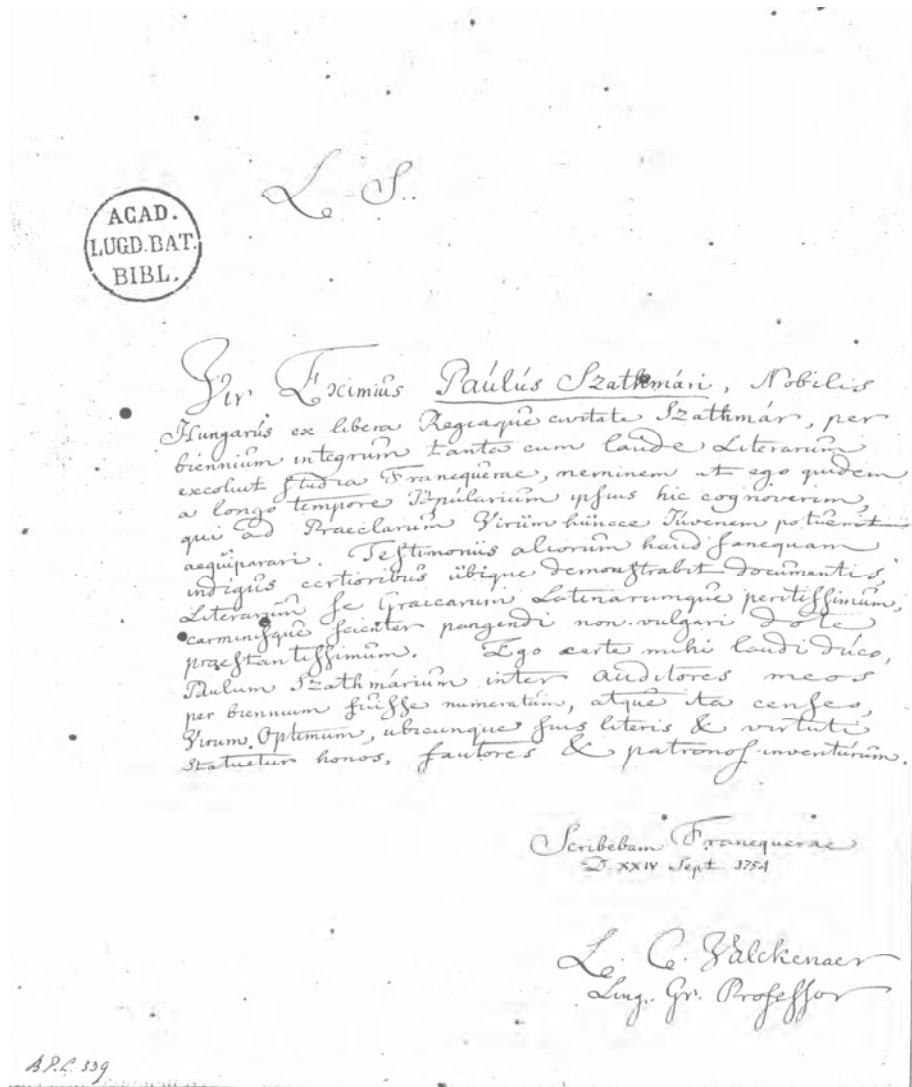 L. S.
ACAD.
LUGD. BAT.
BIBL.
Vir Eximius Paulus Szathmári, Nobilis
Hungarus ex libera Regiaque civitate Szathmár, per
biennium integrum tanta cum laude Literarum
excoluit studia Franequerae, neminem ut ego quidem
a longo tempore Popularium ipsius hic cognoverim,
qui ad Praeclarum Virum huncce Juvenem potuerit
aequiparari. Testimoniis aliorum haud sanequam
indigus certioribus ubique demonstrabit documentis,
Literarum se Graecarum Latinarumque peritissimum,
carminisque scienter pangendi non vulgari dote
praestantissimum. Ego certe mihi laudi duco,
Paulum Szathmárium inter auditores meos
per biennium fuisse numeratum, atque ita censeo,
Virum Optimum, ubicunque suus literis & virtuti
statuetur honos, fautores & patronos inventurum.
Scribebam Franequerae
D. XXIV Sept. 1754
L. C. Valckenaer
Ling. Gr. Professor
B.P.L. 339